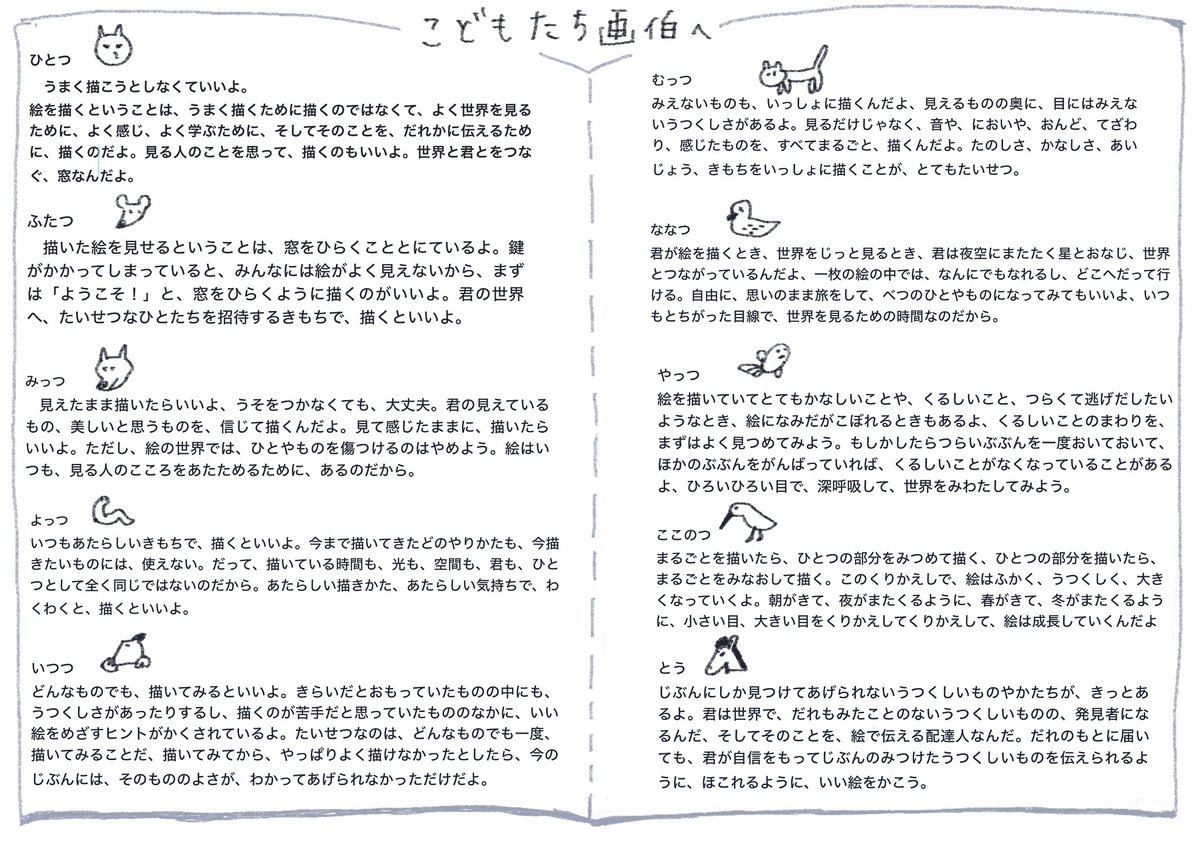 こどもたち画伯へ
ひとつ
うまく描こうとしなくていいよ。
絵を描くということは、うまく描くために描くのではなくて、よく世界を見る
ために、よく感じ、よく学ぶために、そしてそのことを、だれかに伝えるため
に、描くのだよ。見る人のことを思って、描くのもいいよ。世界と君とをつな
ぐ、窓なんだよ。
ふたつ
描いた絵を見せるということは、窓をひらくこととにているよ。鍵
がかかってしまっていると、みんなには絵がよく見えないから、まず
は「ようこそ！」と、窓をひらくように描くのがいいよ。君の世界
へ、たいせつなひとたちを招待するきもちで、描くといいよ。
みっつ
見えたまま描いたらいいよ、うそをつかなくても、大丈夫。君の見えている
もの、美しいと思うものを、信じて描くんだよ。見て感じたままに、描いたら
いいよ。ただし、絵の世界では、ひとやものを傷つけるのはやめよう。絵はい
つも、見る人のこころをあたためるために、あるのだから。
よっつ
いつもあたらしいきもちで、描くといいよ。今まで描いてきたどのやりかたも、今描
きたいものには、使えない。だって、描いている時間も、光も、空間も、君も、ひと
つとして全く同じではないのだから。あたらしい描きかた、あたらしい気持ちで、わ
くわくと、描くといいよ。
いつつ
どんなものでも、描いてみるといいよ。きらいだとおもっていたものの中にも、
うつくしさがあったりするし、描くのが苦手だと思っていたもののなかに、いい
絵をめざすヒントがかくされているよ。たいせつなのは、どんなものでも一度、
描いてみることだ、描いてみてから、やっぱりよく描けなかったとしたら、今の
じぶんには、そのもののよさが、わかってあげられなかっただけだよ。
むっつ
みえないものも、いっしょに描くんだよ、見えるものの奥に、目にはみえな
いうつくしさがあるよ。見るだけじゃなく、音や、においや、おんど、てざわ
り、感じたものを、すべてまるごと、描くんだよ。たのしさ、かなしさ、あい
じょう、きもちをいっしょに描くことが、とてもたいせつ。
ななつ
君が絵を描くとき、世界をじっと見るとき、君は夜空にまたたく星とおなじ、世界
とつながっているんだよ、一枚の絵の中では、なんにでもなれるし、どこへだって行
ける。自由に、思いのまま旅をして、べつのひとやものになってみてもいいよ、いつ
もとちがった目線で、世界を見るための時間なのだから。
やっつ
絵を描いていてとてもかなしいことや、くるしいこと、つらくて逃げだしたい
ようなとき、絵になみだがこぼれるときもあるよ、くるしいことのまわりを、
まずはよく見つめてみよう。もしかしたらつらいぶぶんを一度おいておいて、
ほかのぶぶんをがんばっていれば、くるしいことがなくなっていることがある
よ、ひろいひろい目で、深呼吸して、世界をみわたしてみよう。
ここのつ
まるごとを描いたら、ひとつの部分をみつめて描く、ひとつの部分を描いたら、
まるごとをみなおして描く。このくりかえしで、絵はふかく、うつくしく、大き
くなっていくよ。朝がきて、夜がまたくるように、春がきて、冬がまたくるよう
に、小さい目、大きい目をくりかえしてくりかえして、絵は成長していくんだよ
とう
じぶんにしか見つけてあげられないうつくしいものやかたちが、きっとあ
るよ。君は世界で、だれもみたことのないうつくしいものの、発見者にな
るんだ、そしてそのことを、絵で伝える配達人なんだ。だれのもとに届い
ても、君が自信をもってじぶんのみつけたうつくしいものを伝えられるよ
うに、ほこれるように、いい絵をかこう。